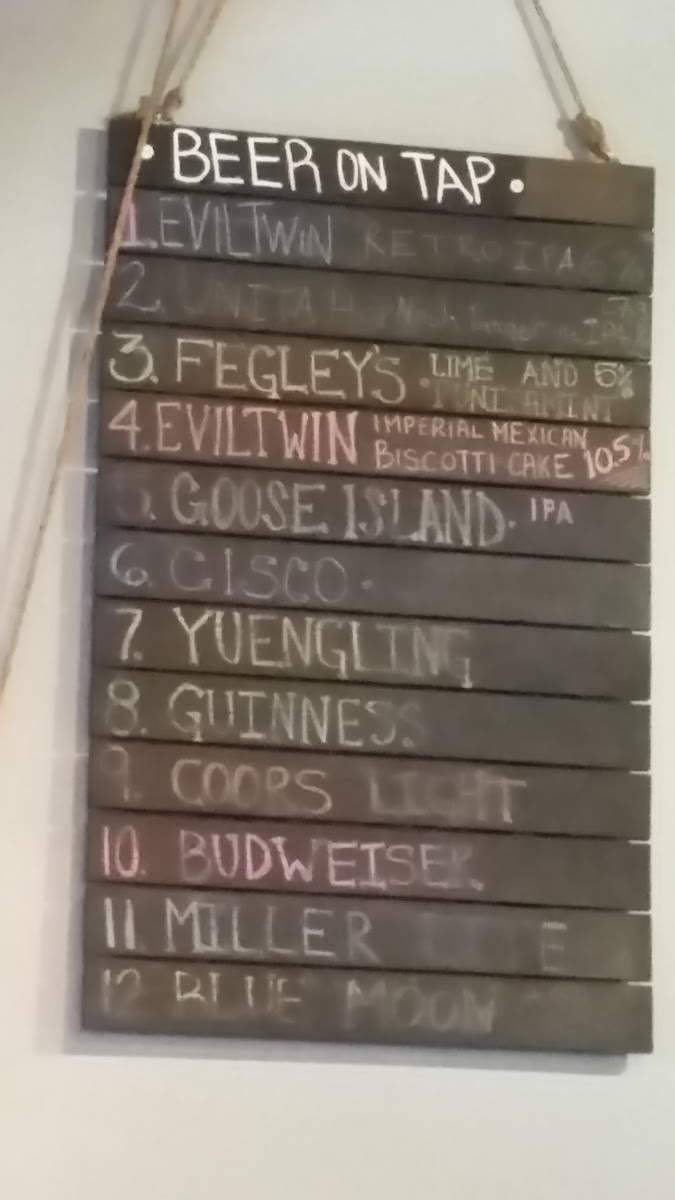 • BEER ON TAP •
1. EVILTWIN RETRO IPA 6%
2. UNITA
3. FEGLEY'S • LIME AND 5%
4. EVILTWIN IMPERIAL MEXICAN
BISCOTTI CAKE 10.5%
5. GOOSE ISLAND. IPA
6. CISCO.
7. YUENGLING
8. GUINNESS.
9. COORS LIGHT
10. BUDWEISER.
11. MILLER LITE
12 BLUE MOON